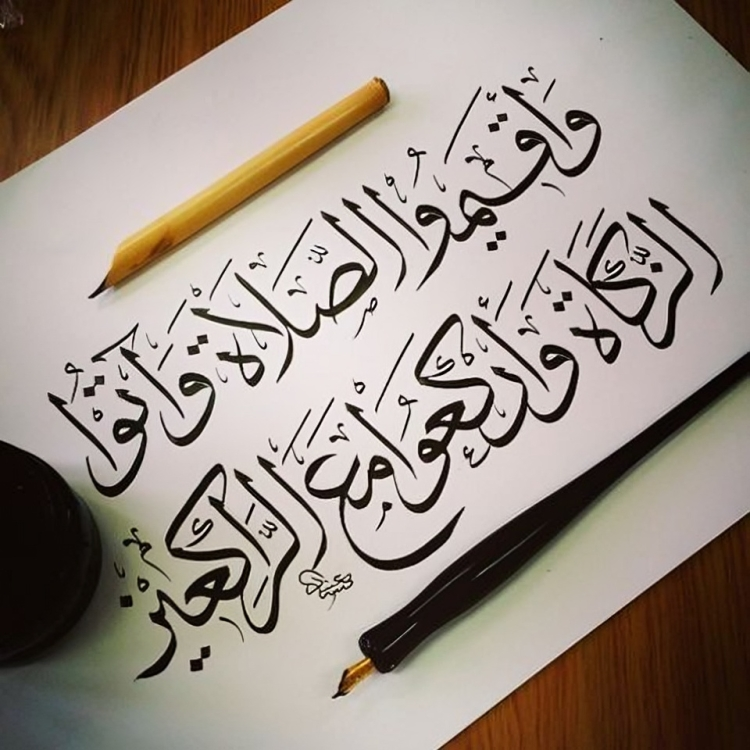 وَأَقِيمُوا الصَّلَاةَ وَآتُوا
الزَّكَاةَ وَارْكَعُوا مَعَ الرَّاكِعِينَ